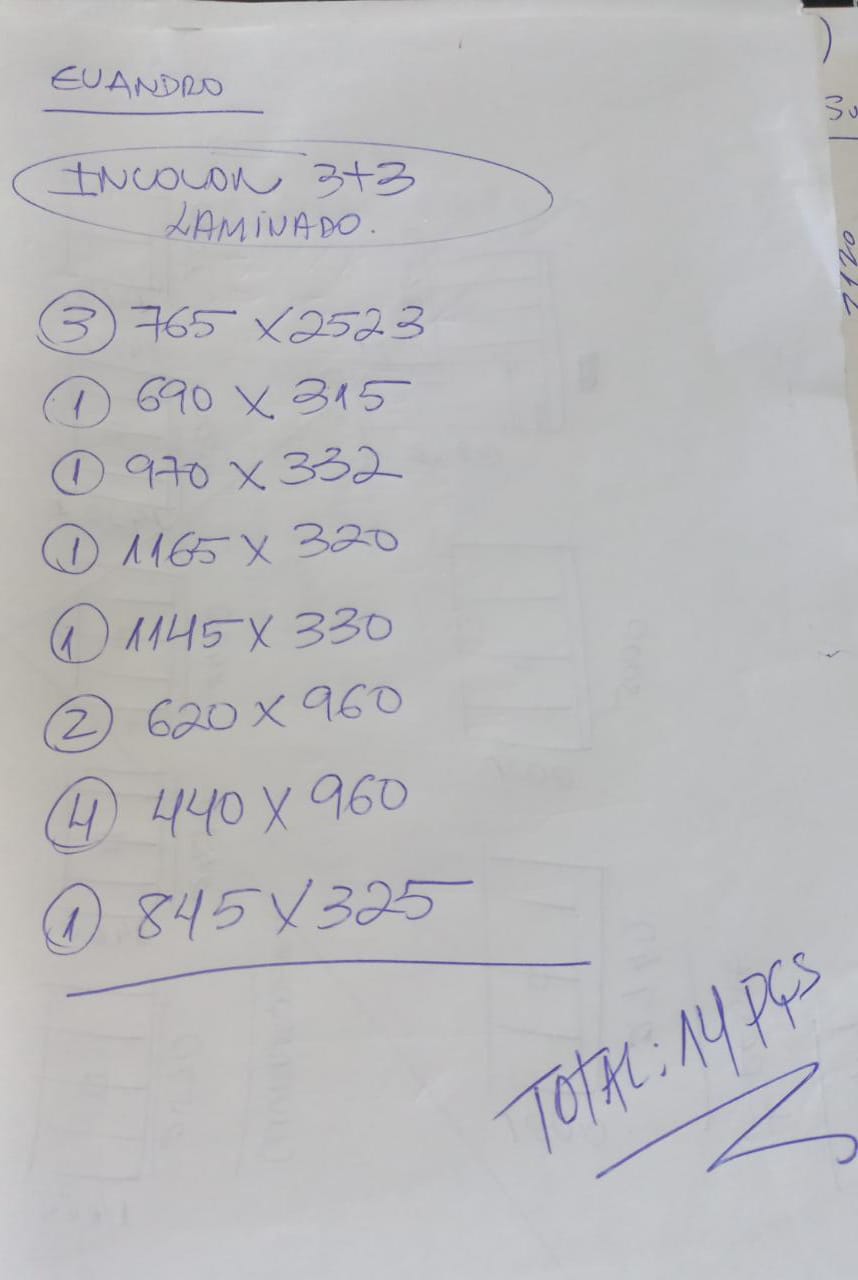 EVANDRO
INCOLOR 3+3
LAMINADO.
3 765 X 2523
1 690 X 315
1 970 X 332
1 1165 X 320
1 1145 X 330
2 620 X 960
4 440 X 960
1 845 X 325
TOTAL: 14 PÇS